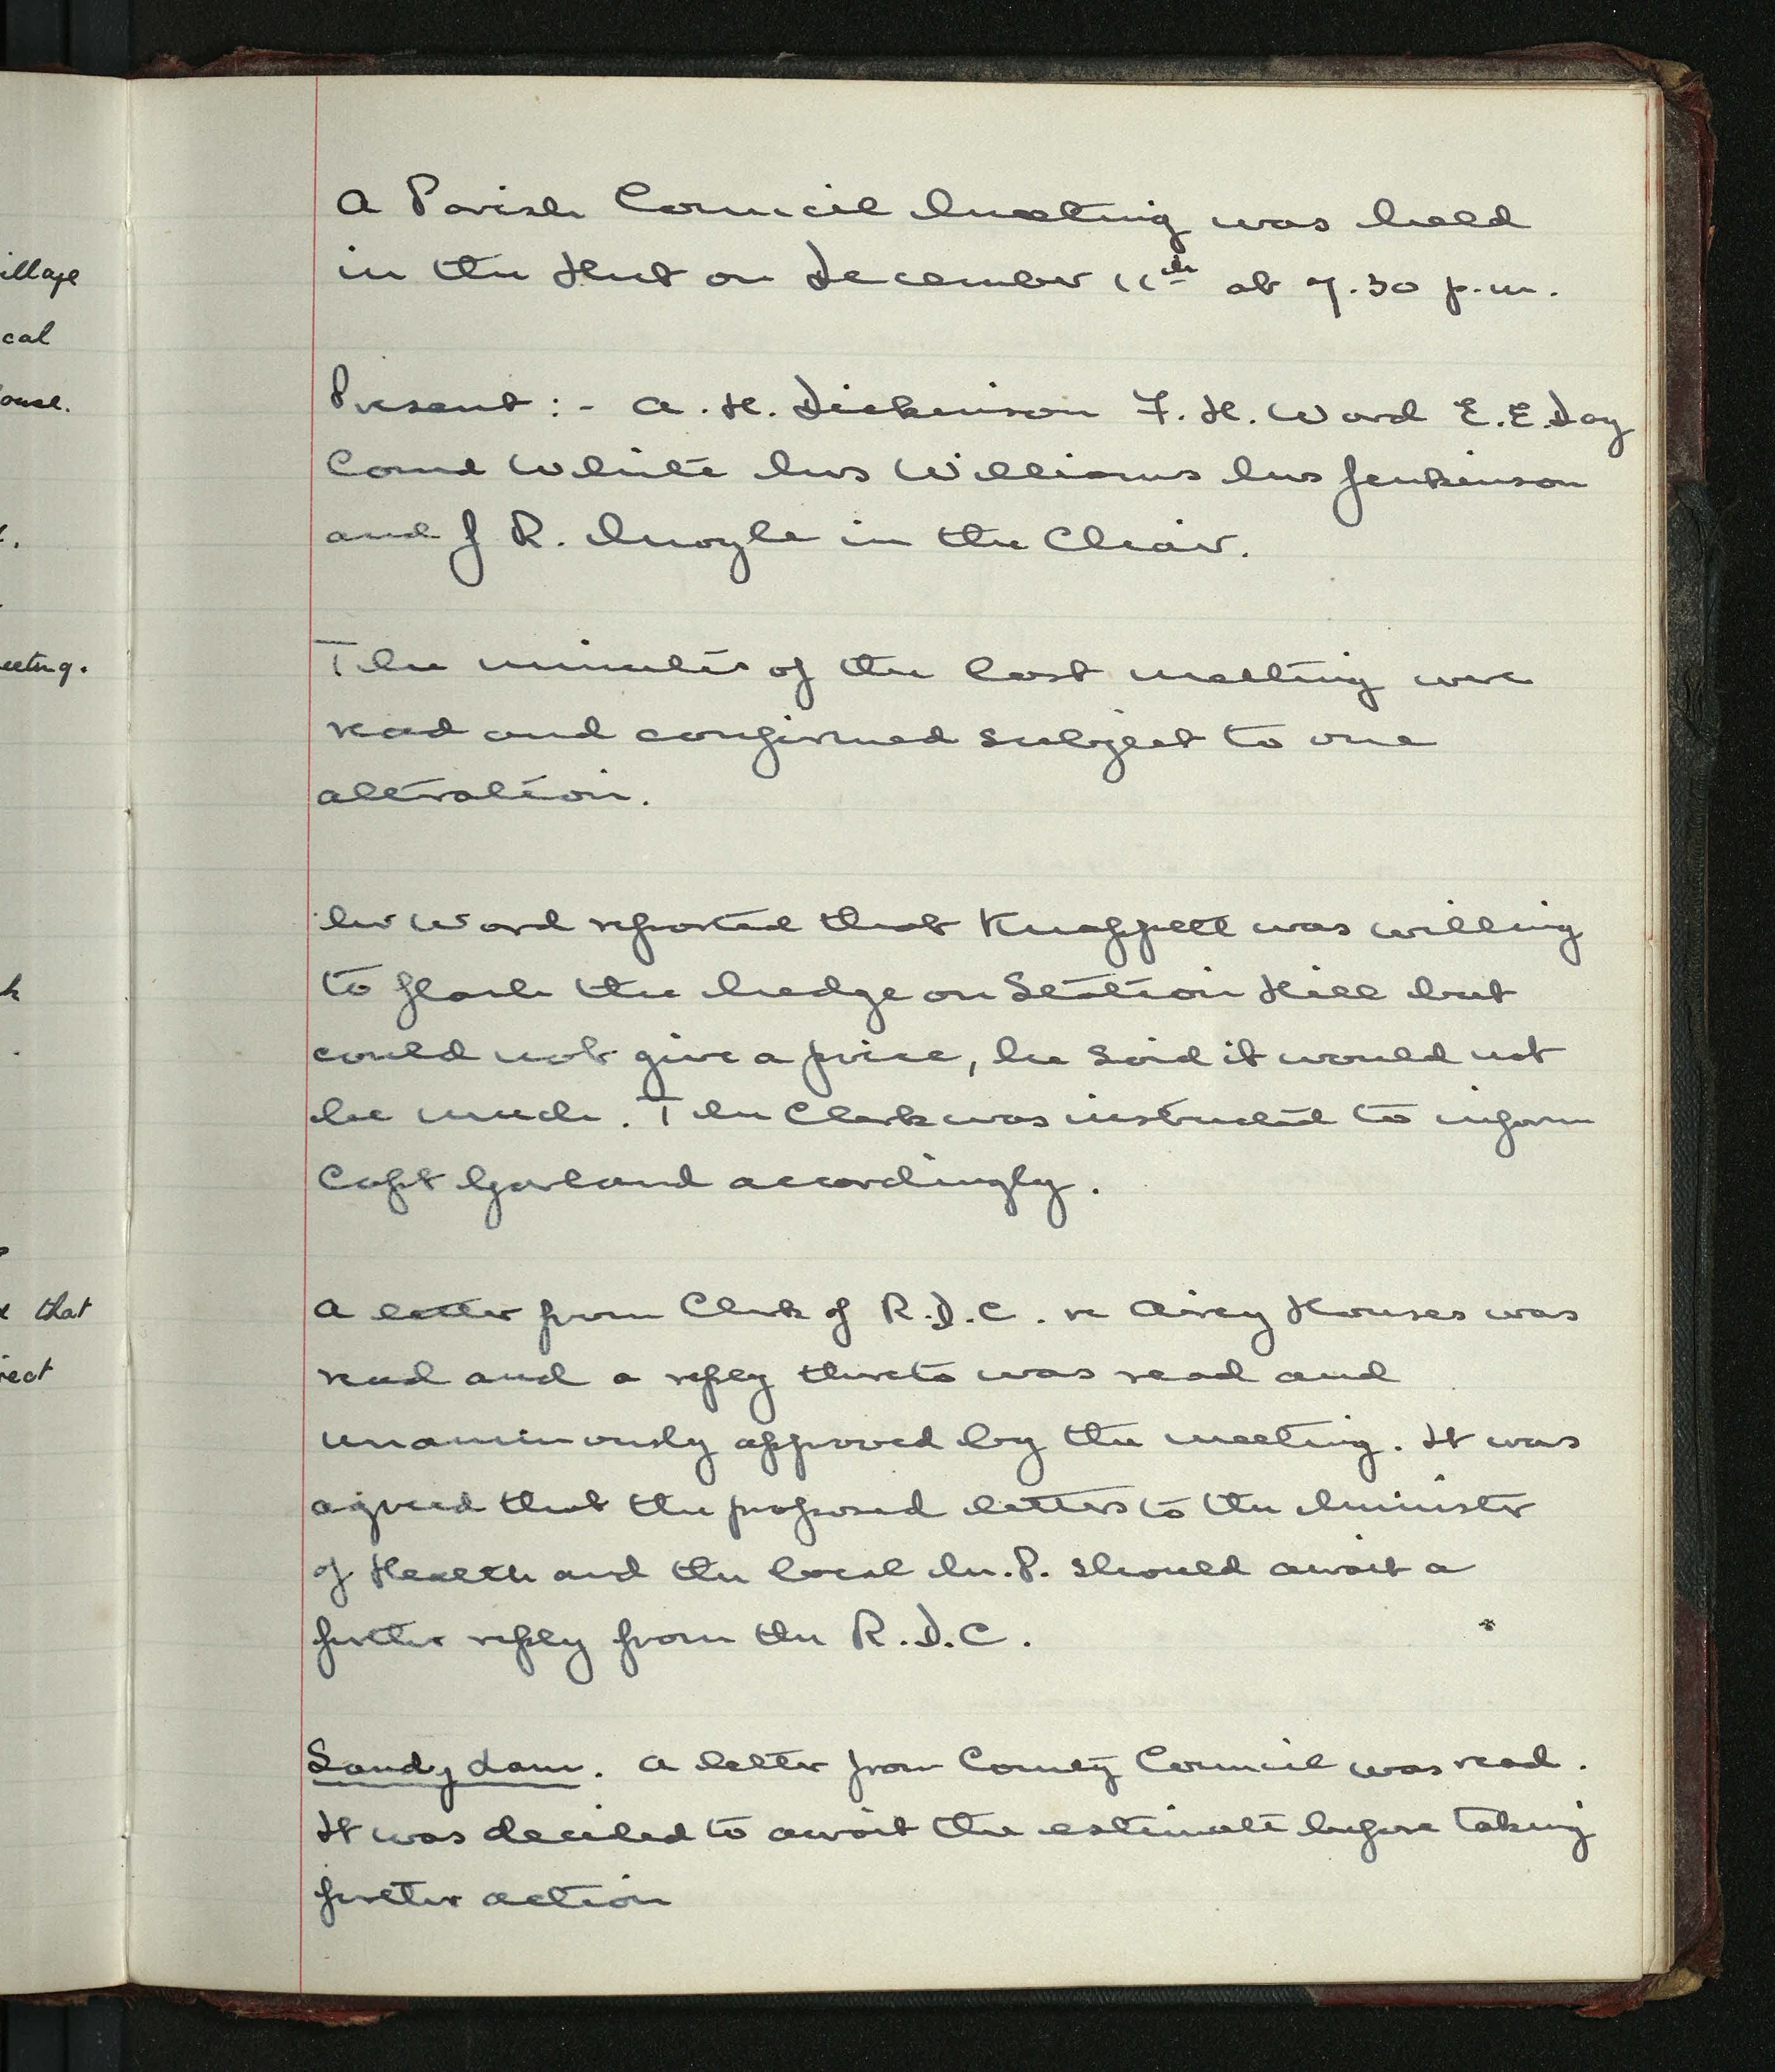 illage
cal
ouse.
eeting.
that
ject
A Parish Council Meeting was held
in the Hut on December 11th at 7.30 p.m.
Present :- A. H. Dickinson F. H. Ward E. E. Day
Comd White Mrs Williams Mrs Jenkinson
and J R. Moyle in the Chair.
The minutes of the last meeting were
read and confirmed subject to one
alteration.
Mr Ward reported that Knappett was willing
to plash the hedge on Station Hill but
could not give a price, he said it would not
be much. The Clerk was instructed to inform
Capt Garland accordingly.
A letter from Clerk of R.D.C. re Airey Houses was
read and a reply thereto was read and
unaminously approved by the meeting. It was
agreed that the proposed letters to the Minister
of Health and the local M.P. should await a
further reply from the R.D.C.
Sandy Lane. A letter from County Council was read.
It was decided to await the estimate before taking
further action